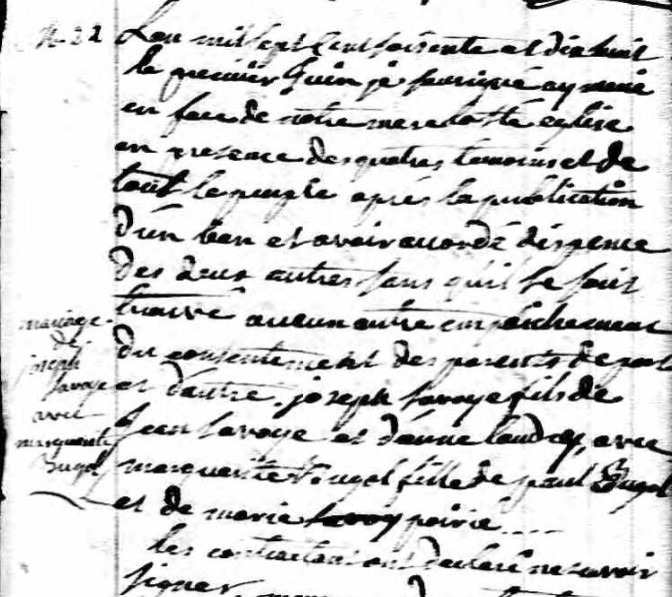 M. 22
Lan mil sept cent soisente et dix huit
le premier Juin je soussigné ay marié
en face de notre mere la Ste eglise
en presence des quatres temoins et de
tout le peuple aprés la publication
d'un ban et avoir accordé dispence
des deux autres sans qu'il se soit
trouvé aucun autre empêchement
du consentement des parents de part
et d'autre. joseph Savoye fils de
Jean Savoye et d'anne landry, avec
marguerite Bugol fille de paul Bugol
et de marie poirié
les contractans ont declaré ne savoir
signer
mariage
de
joseph
Savoye
avec
marguerite
Bugol